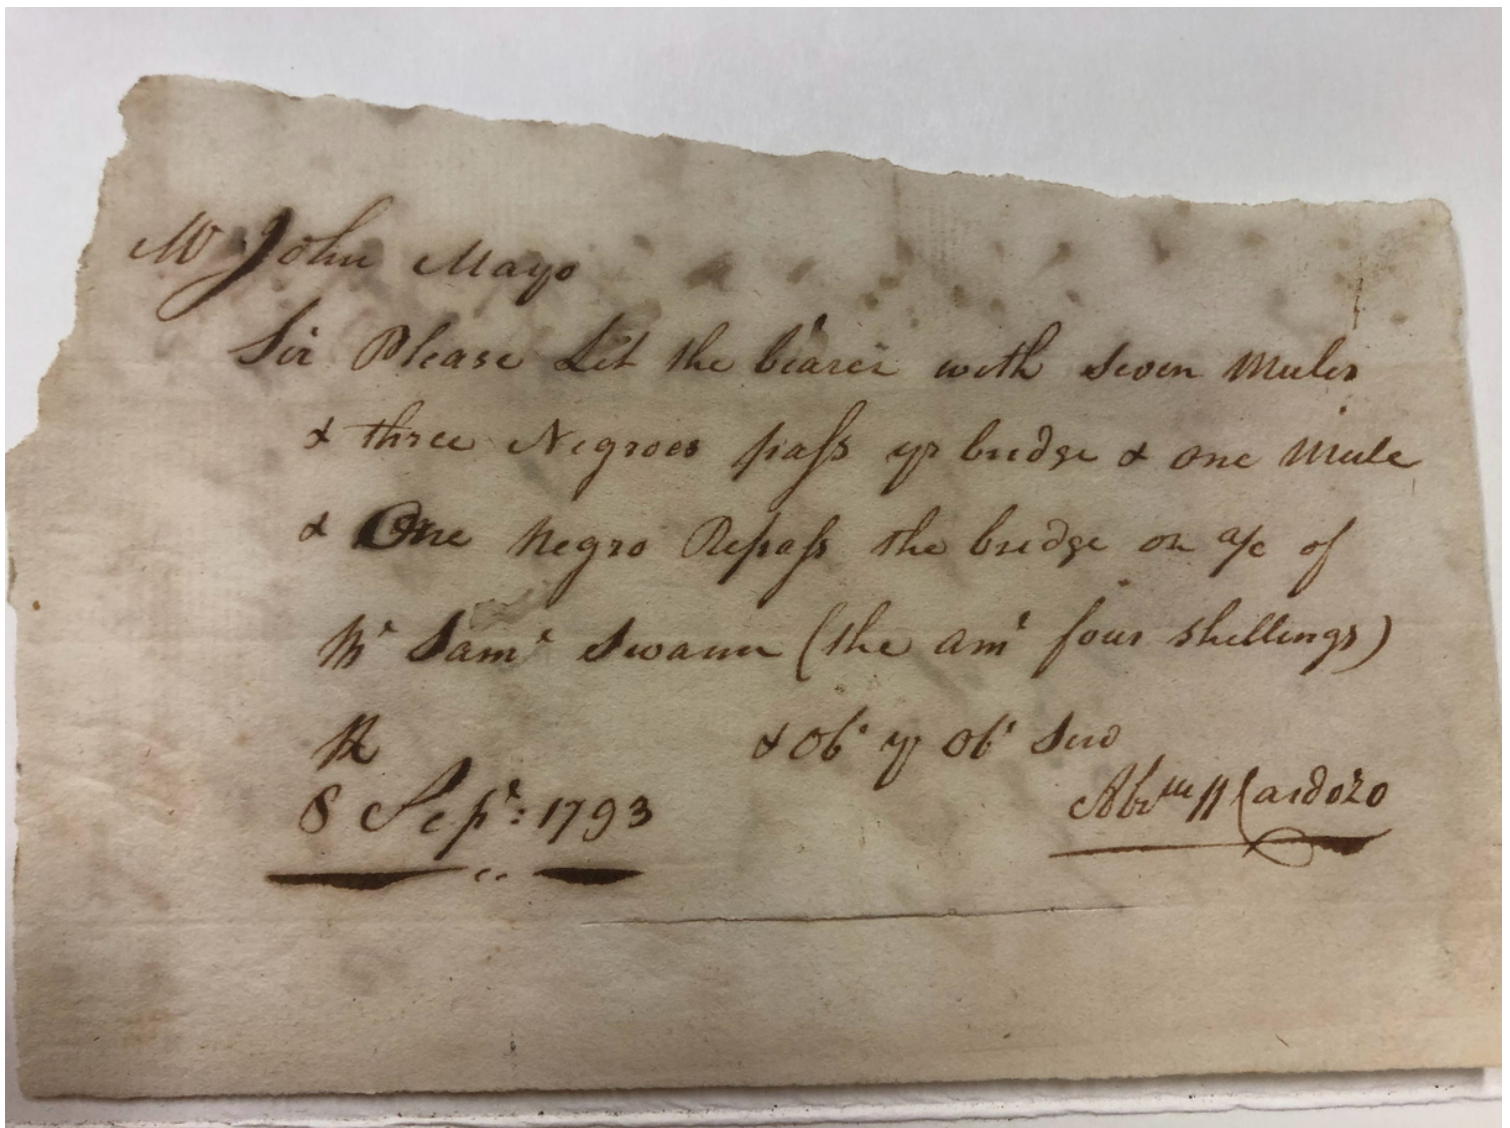 Mr John Mayo
Sir Please Let the bearer with seven Mules
& three Negroes pass yr bridge & one Mule
& One Negro Repass the bridge on a/c of
Mr Saml Swann (the amt four shillings)
& Obt yr Obt Serv
8 Sepr: 1793
Abrm H Cardozo